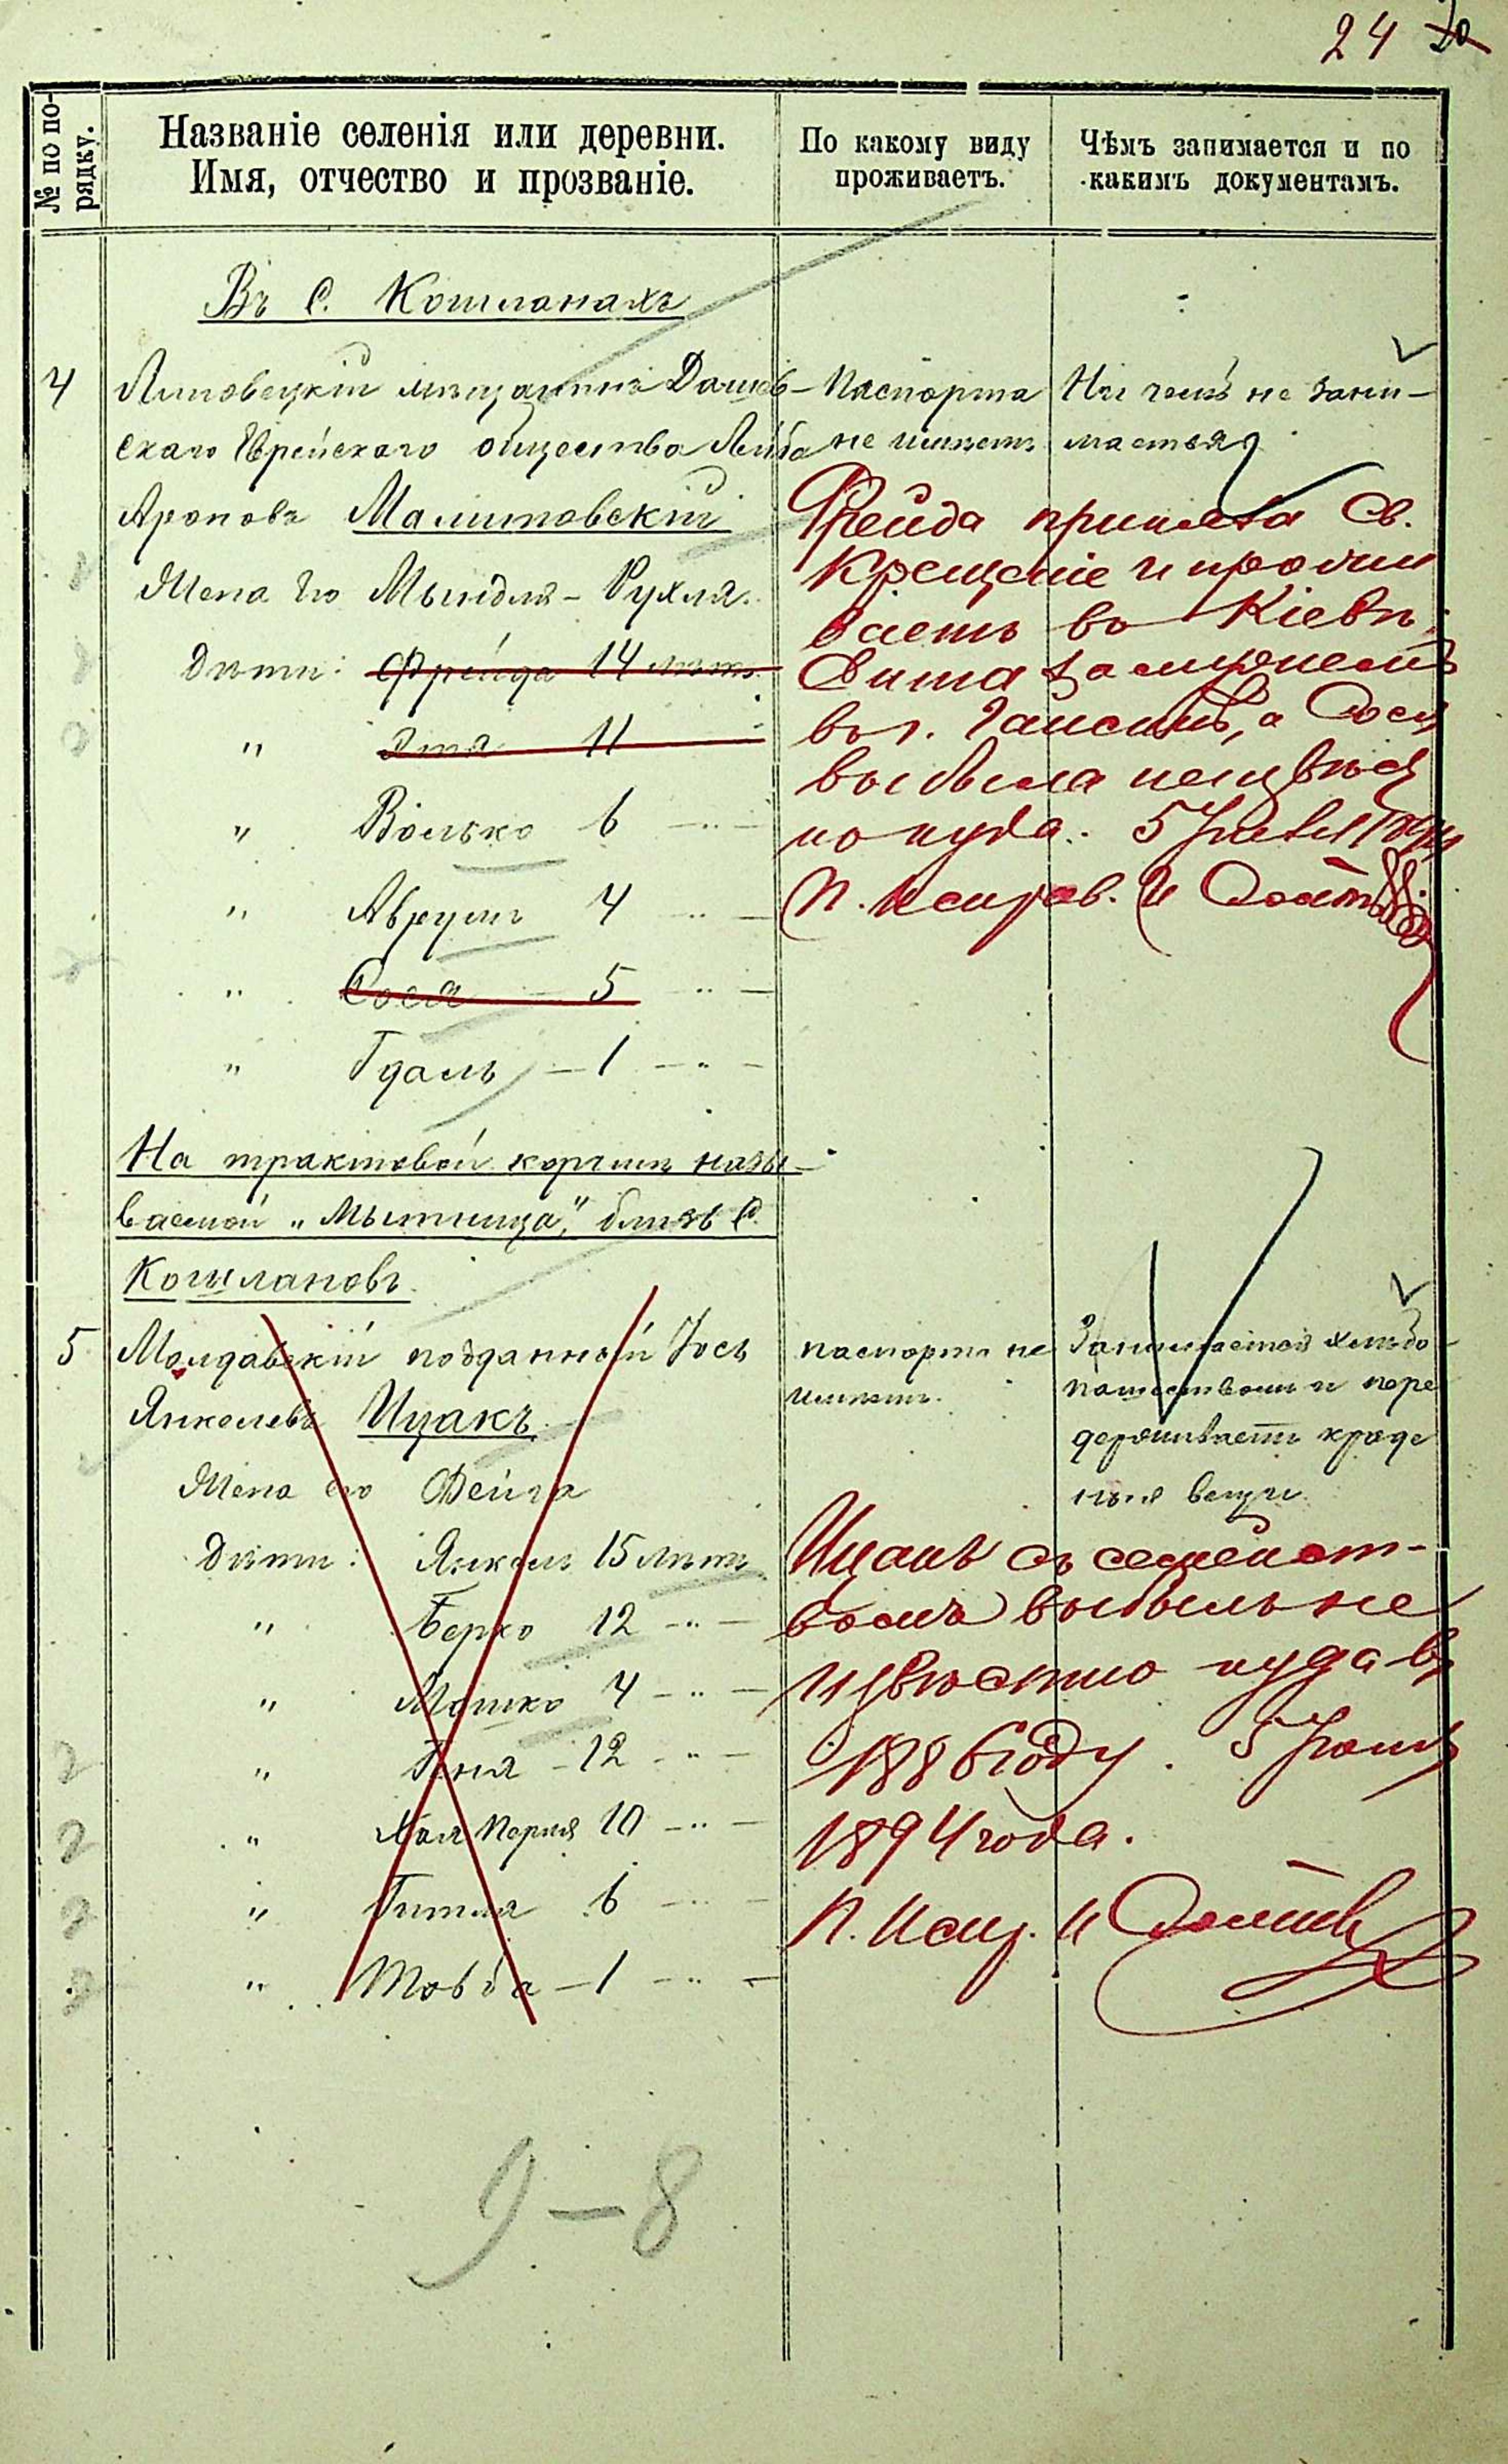 24 20
№ по по-
рядку.
Названіе селенія или деревни.
Имя, отчество и прозваніе.
По какому виду
проживаетъ.
Чѣмъ занимается и по
какимъ документамъ.
Въ С. Кошланахъ
4 Липовецкій мѣщанинъ Дашев-
скаго Еврейскаго общества Лейба
Ароновъ Малитовскій
Жена Его Мындля - Рухля.
Дѣти: Фрейда 14 лѣтъ.
" Этя 11
" Волько 6 - " -
" Аврумъ 4 - " -
" Сося - 5 - " -
" Гдаль - 1 - " -
Паспорта
не имѣетъ
Ни чемъ не зани-
мается
Фейда приняла Св.
Крещеніе и прожи
ваетъ въ Кіевѣ,
замужемъ
въ г. Гайсинѣ, а Сося
выбыла неизвѣст
но куда. 5
П. Исправ. И
На трактовой корчмѣ назы-
ваемой „Мытница", близь С.
Кошлановъ.
5 Молдавскій подданный Іось
Янкелевъ Ицакъ
Жена его Фейга
Дѣти: Янкель 15 лѣтъ
" Берко 12 - " -
" Мошко 4 - " -
" 12 - " -
" Хая Перля 10 - " -
" Гитля 6 - " -
" Товба - 1 - " -
паспорта не
имѣетъ.
Занимается хлѣбо-
пашествомъ и пере
держиваетъ краде
ныя вещи.
Ицакъ съ семейст-
вомъ выбылъ не
извѣстно куда въ
1886 году. 5 Іюня
1894 года.
П. Испр. И
9 - 8